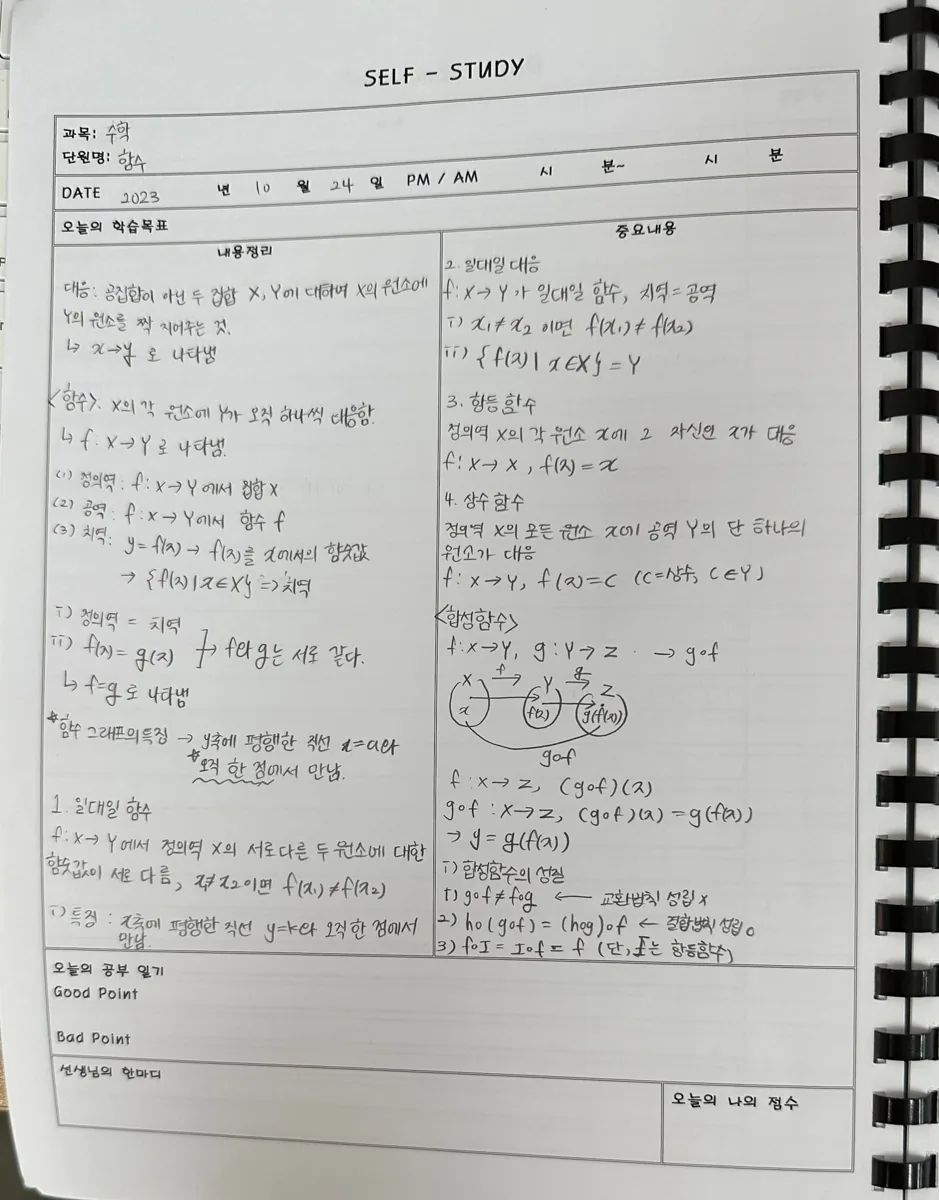 SELF - STUDY
과목: 수학
단원명: 함수
DATE 2023 년 10 월 24 일 PM / AM 시 분~ 시 분
오늘의 학습목표
내용정리
대응: 공집합이 아닌 두 집합 X, Y에 대하여 X의 원소에
Y의 원소를 짝 지어주는 것.
↳ x→y 로 나타냄
<함수>: X의 각 원소에 Y가 오직 하나씩 대응함.
↳ f: X→Y로 나타냄.
(1) 정의역: f: X→Y에서 집합 X
(2) 공역: f: X→Y에서 함수 f
(3) 치역: y=f(x) → f(x)를 x에서의 함숫값
→ {f(x)|x∈X} => 치역
i) 정의역 = 치역
ii) f(x) = g(x) ] → f와 g는 서로 같다.
↳ f=g로 나타냄
*함수 그래프의 특징 → y축에 평행한 직선 x=a와
*오직 한 점에서 만남.
1. 일대일 함수
f: X→Y에서 정의역 X의 서로 다른 두 원소에 대한
함숫값이 서로 다름, x₁≠x₂이면 f(x₁)≠f(x₂)
i) 특징: x축에 평행한 직선 y=k와 오직 한 점에서
만남.
중요내용
2. 일대일 대응
f: X→Y가 일대일 함수, 치역=공역
i) x₁≠x₂ 이면 f(x₁)≠f(x₂)
ii) {f(x)|x∈X} = Y
3. 항등 함수
정의역 X의 각 원소 x에 그 자신인 x가 대응
f: X→X, f(x)=x
4. 상수 함수
정의역 X의 모든 원소 x에 공역 Y의 단 하나의
원소가 대응
f: X→Y, f(x)=C (C=상수, C∈Y)
<합성함수>
f: X→Y, g: Y→Z → g∘f
X f Y g Z
x f(x) g(f(x))
g∘f
f: X→Z, (g∘f)(x)
g∘f : X→Z, (g∘f)(x) = g(f(x))
→ y=g(f(x))
i) 합성함수의 성질
1) g∘f≠f∘g ← 교환법칙 성립 x
2) h∘(g∘f) = (h∘g)∘f ← 결합법칙 성립 o
3) f∘I = I∘f = f (단, I는 항등함수)
오늘의 공부 일기
Good Point
Bad Point
선생님의 한마디
오늘의 나의 점수